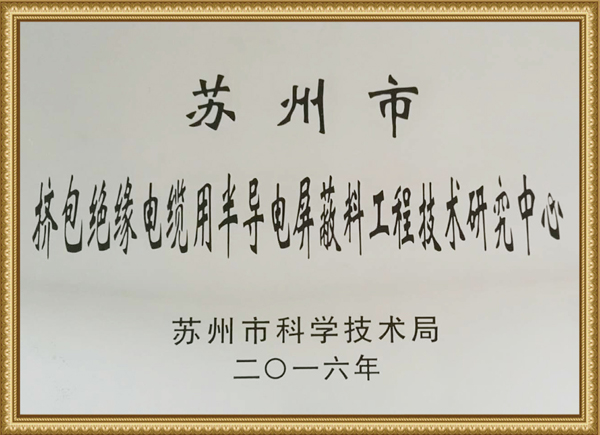 苏州市
挤包绝缘电缆用半导电屏蔽料工程技术研究中心
苏州市科学技术局
二〇一六年